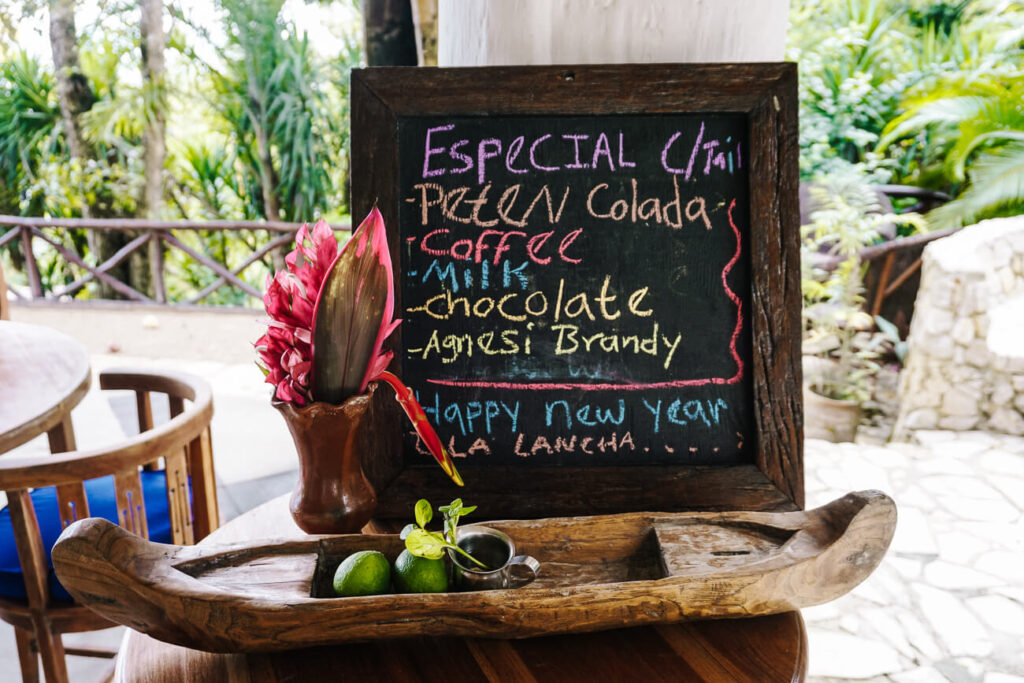 Especial C/Tail
-Peten Colada-
-Coffee
-Milk
-chocolate
-Agnesi Brandy
Happy new year
LA LANCHA . . .